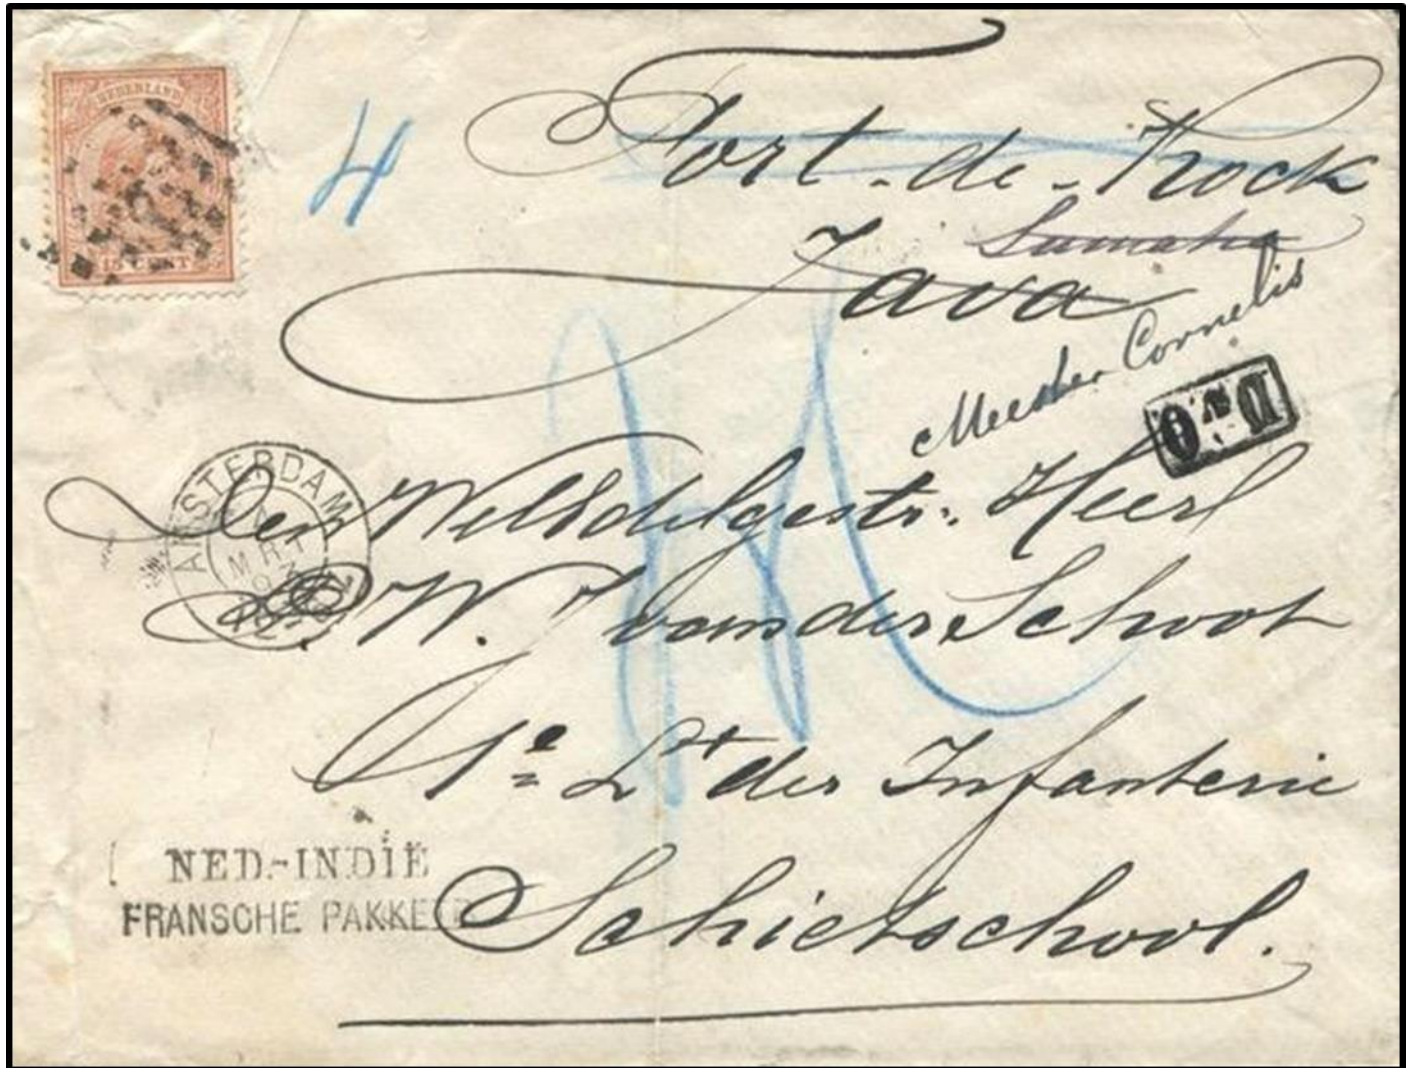 NEDERLAND
15 CENT
4
Fort-de-Kock
Sumatra
Java
Meester Cornelis
AMSTERDAM
MRT
Den WelEdelgestr: Heer
W. J van der Schoot
1e Lt der Infanterie
NED.-INDIË
FRANSCHE PAKKE
Schietschool.